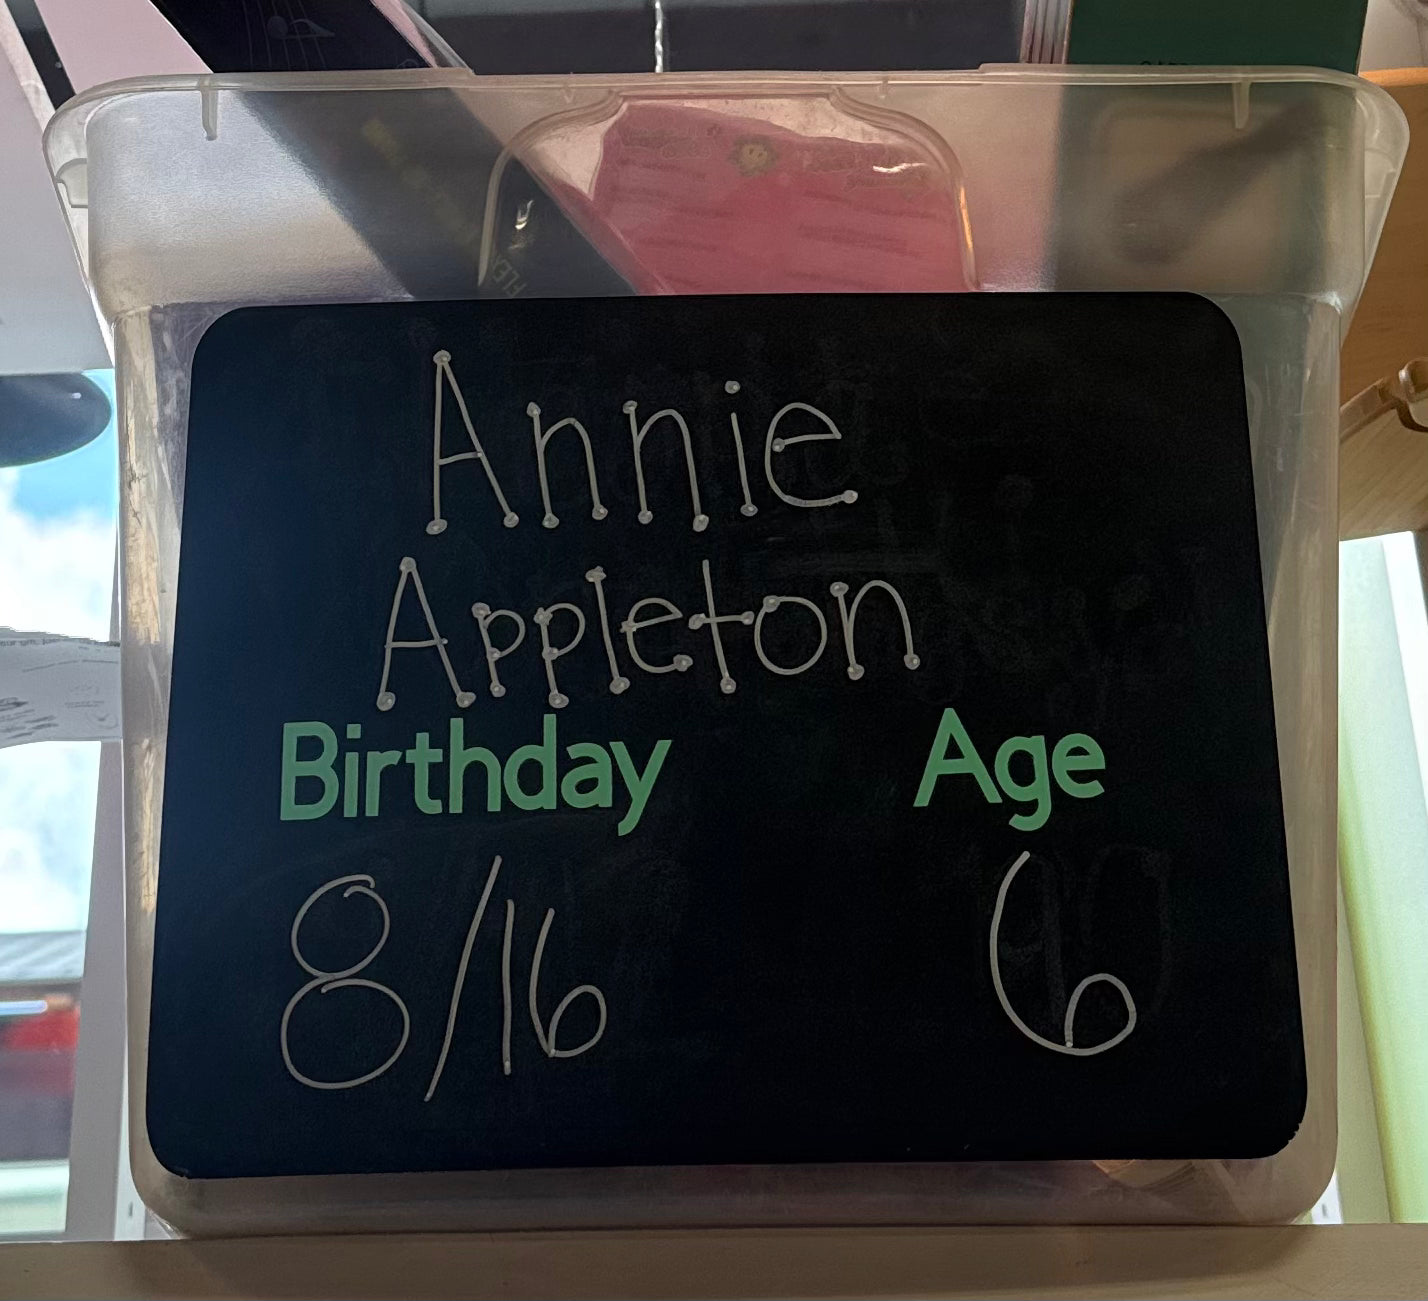 Annie
Appleton
Birthday Age
8/16 6